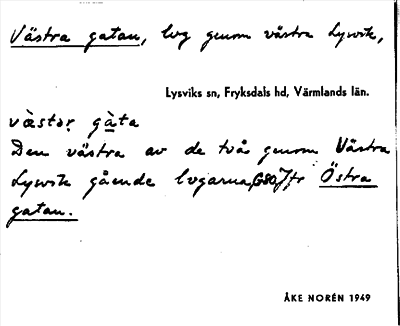 Västra gatan, lvg genom västra Lysvik,
Lysviks sn, Fryksdals hd, Värmlands län.
væ̀stər gàta
Den västra av de två genom Västra
Lysvik gående lvgarna, Jfr Östra
gatan.
ÅKE NORÉN 1949